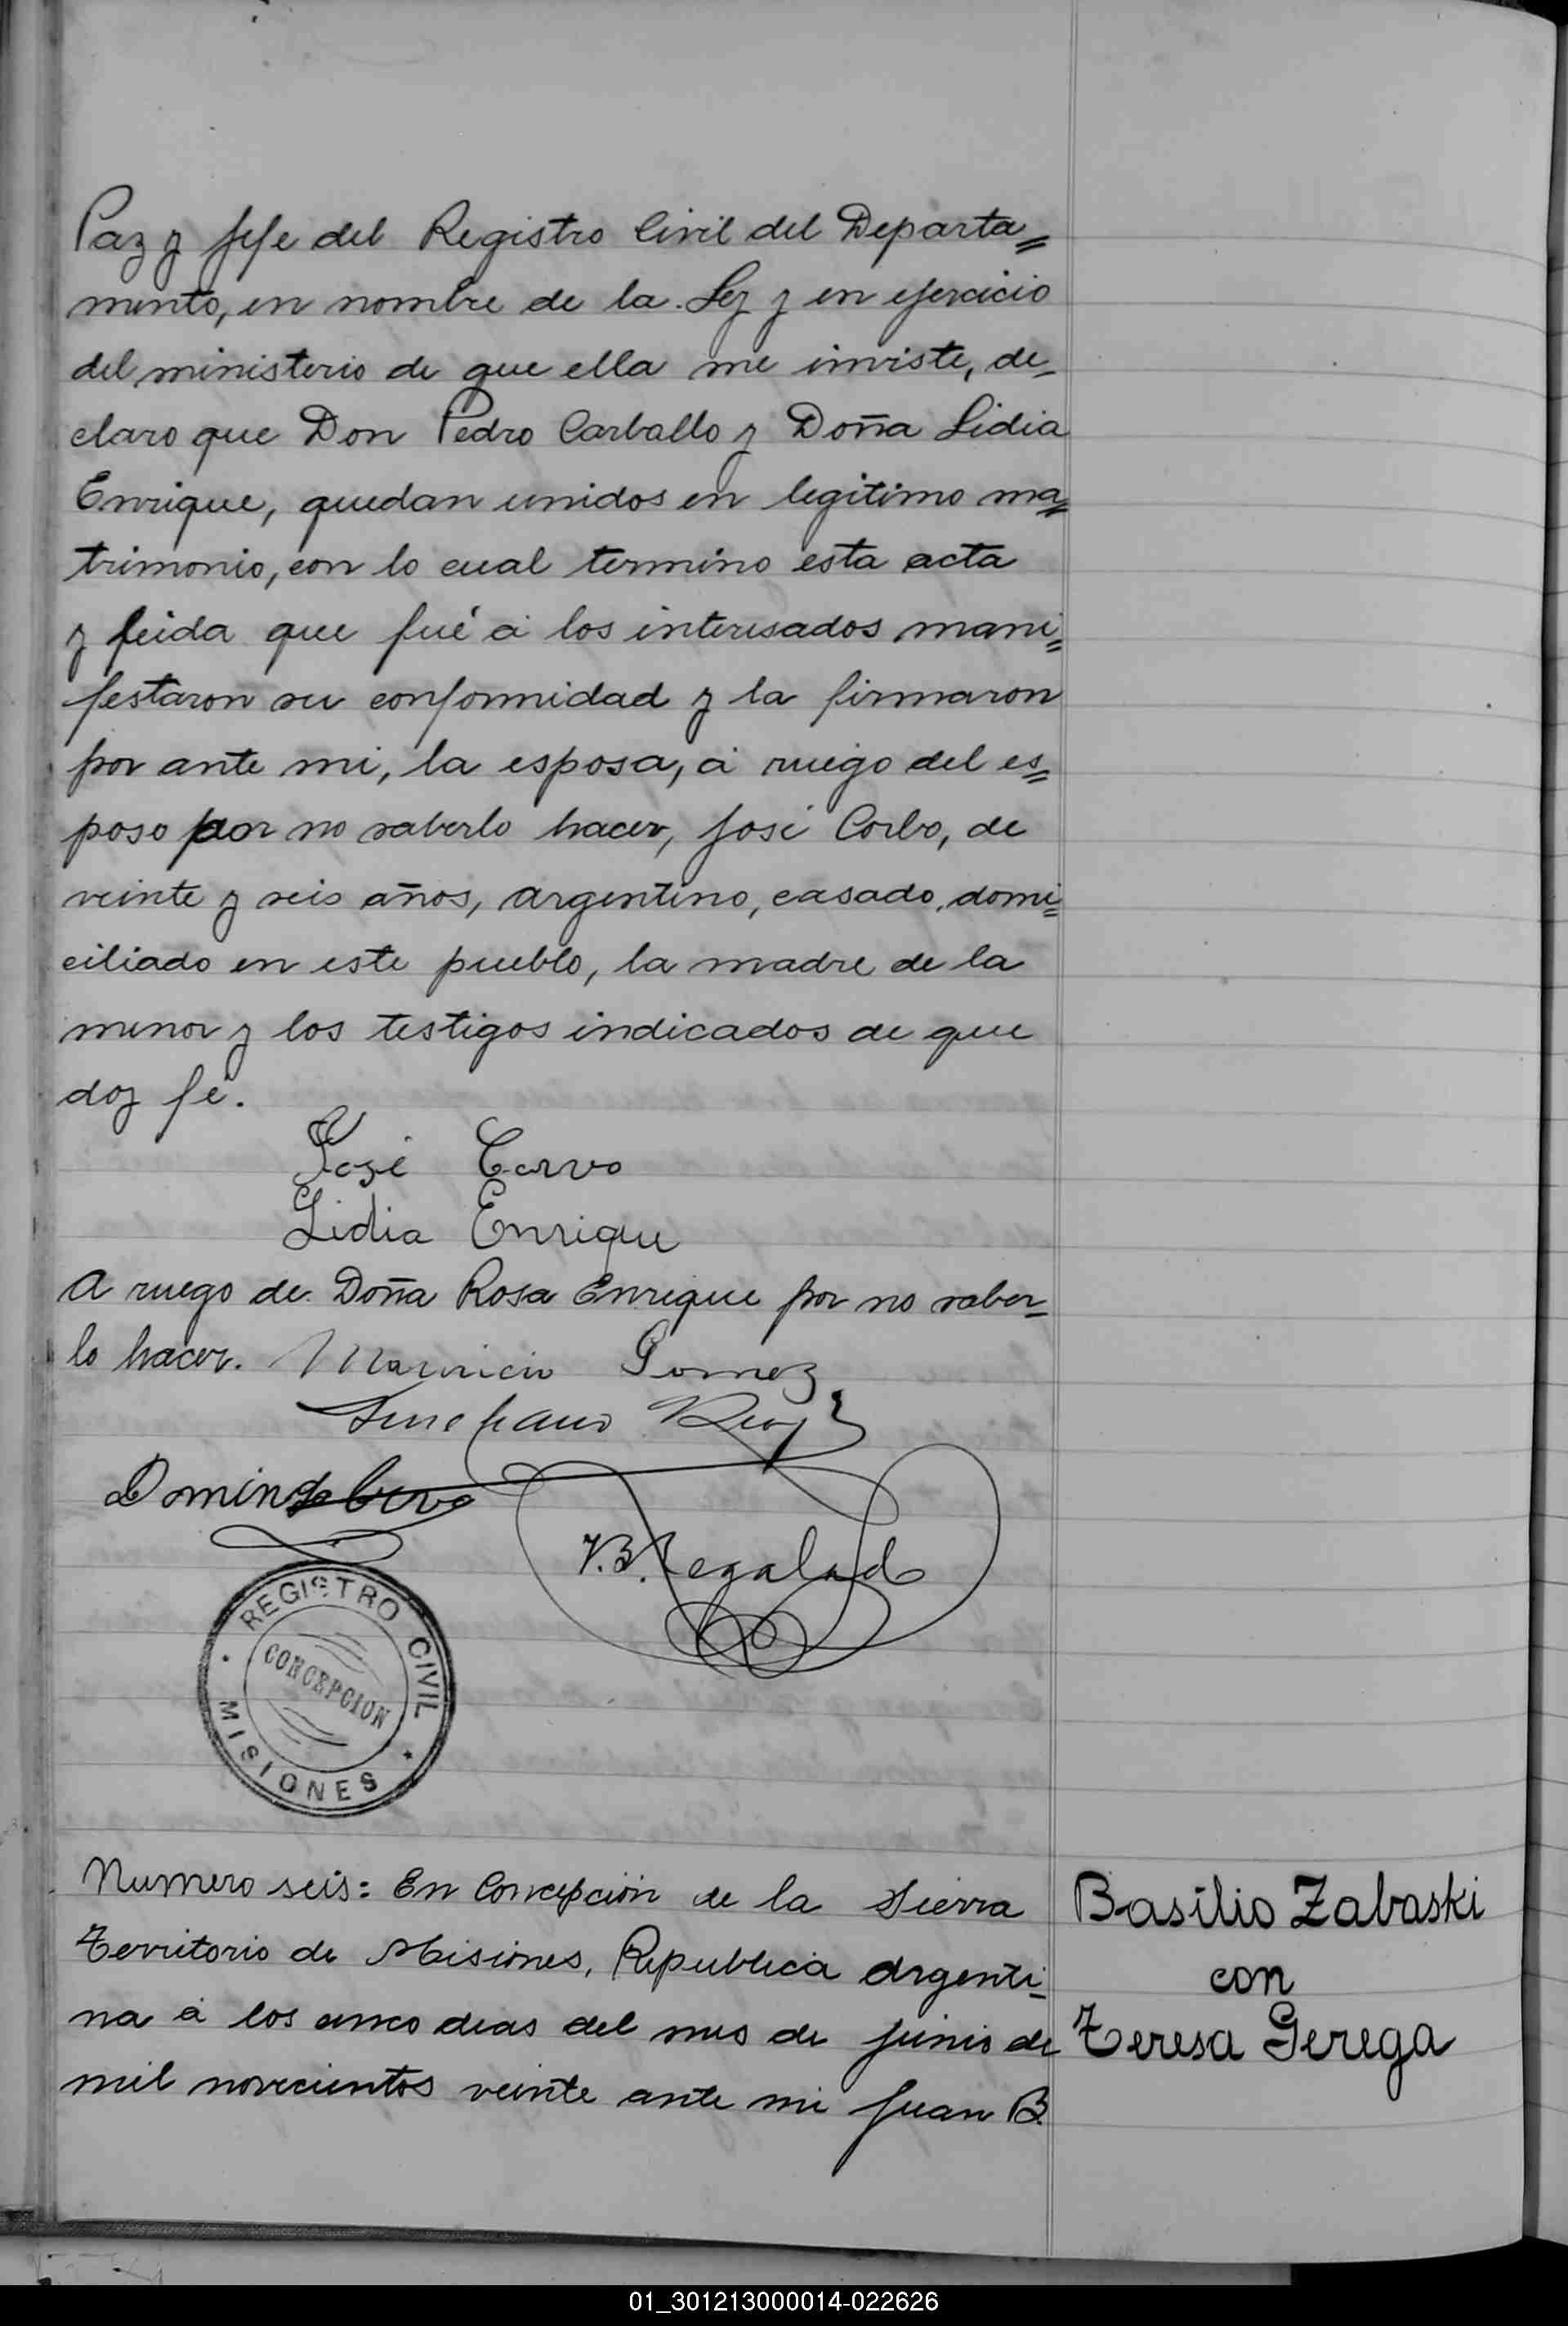 Paz y Jefe del Registro Civil del Departa=
mento, en nombre de la Ley y en ejercicio
del ministerio de que ella me inviste, de-
claro que Don Pedro Carballo y Doña Lidia
Enrique, quedan unidos en legitimo ma=
trimonio, con lo cual termino esta acta
y leida que fué á los interesados mani=
festaron su conformidad y la firmaron
por ante mi, la esposa, á ruego del es=
poso por no saberlo hacer, José Corbo, de
veinte y seis años, argentino, casado, domi=
ciliado en este pueblo, la madre de la
menor y los testigos indicados de que
doy fé.
José Corvo
Lidia Enrique
A ruego de Doña Rosa Enrique por no saber=
lo hacer. Mauricio Gomez
Domingo
J.B. Regalado
REGISTRO CIVIL
CONCEPCION
MISIONES
Numero seis: En Concepción de la Sierra
Territorio de Misiones, Republica Argenti=
na á los cinco dias del mes de Junio de
mil novecientos veinte ante mi Juan B.
Basilio Zabaski
con
Teresa Gerega
01_301213000014-022626